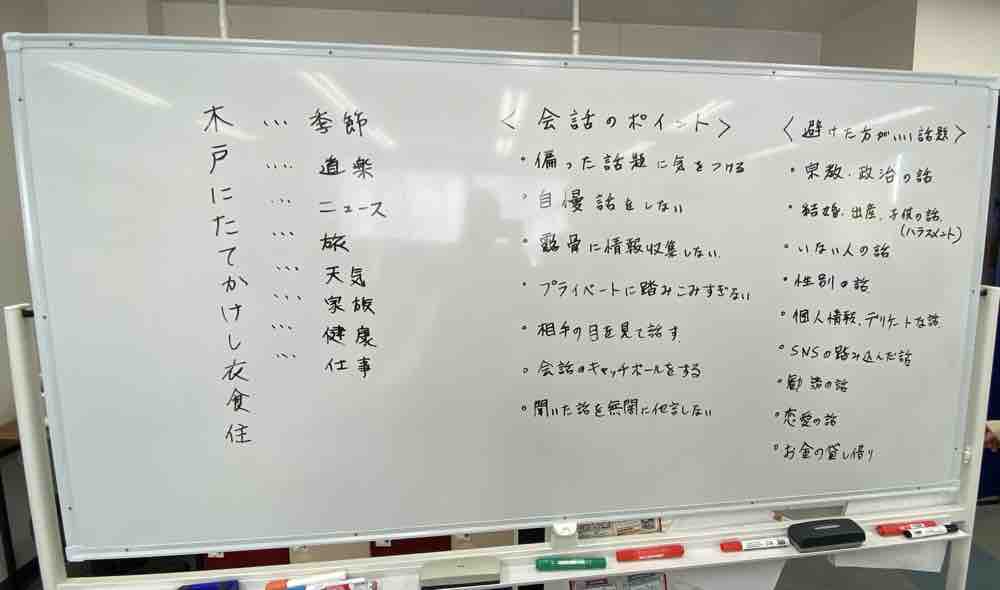 木 … 季節
戸 … 道楽
に … ニュース
た … 旅
て … 天気
か … 家族
け … 健康
し … 仕事
衣
食
住
〈会話のポイント〉
・偏った話題に気をつける
・自慢話をしない
・露骨に情報収集しない
・プライベートに踏みこみすぎない
・相手の目を見て話す
・会話のキャッチボールをする
・聞いた話を無闇に他言しない
〈避けた方がいい話題〉
・宗教・政治の話
・結婚、出産、子供の話
(ハラスメント)
・いない人の話
・性別の話
・個人情報、デリケートな話
・SNSの踏み込んだ話
・勧誘の話
・恋愛の話
・お金の貸し借り